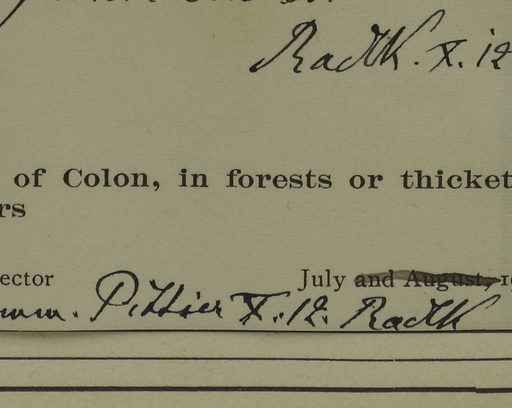 Radlk. X. 12
of Colon, in forests or thicket
rs
ector July and August, 19
mm. Pittier X. 12. Radlk